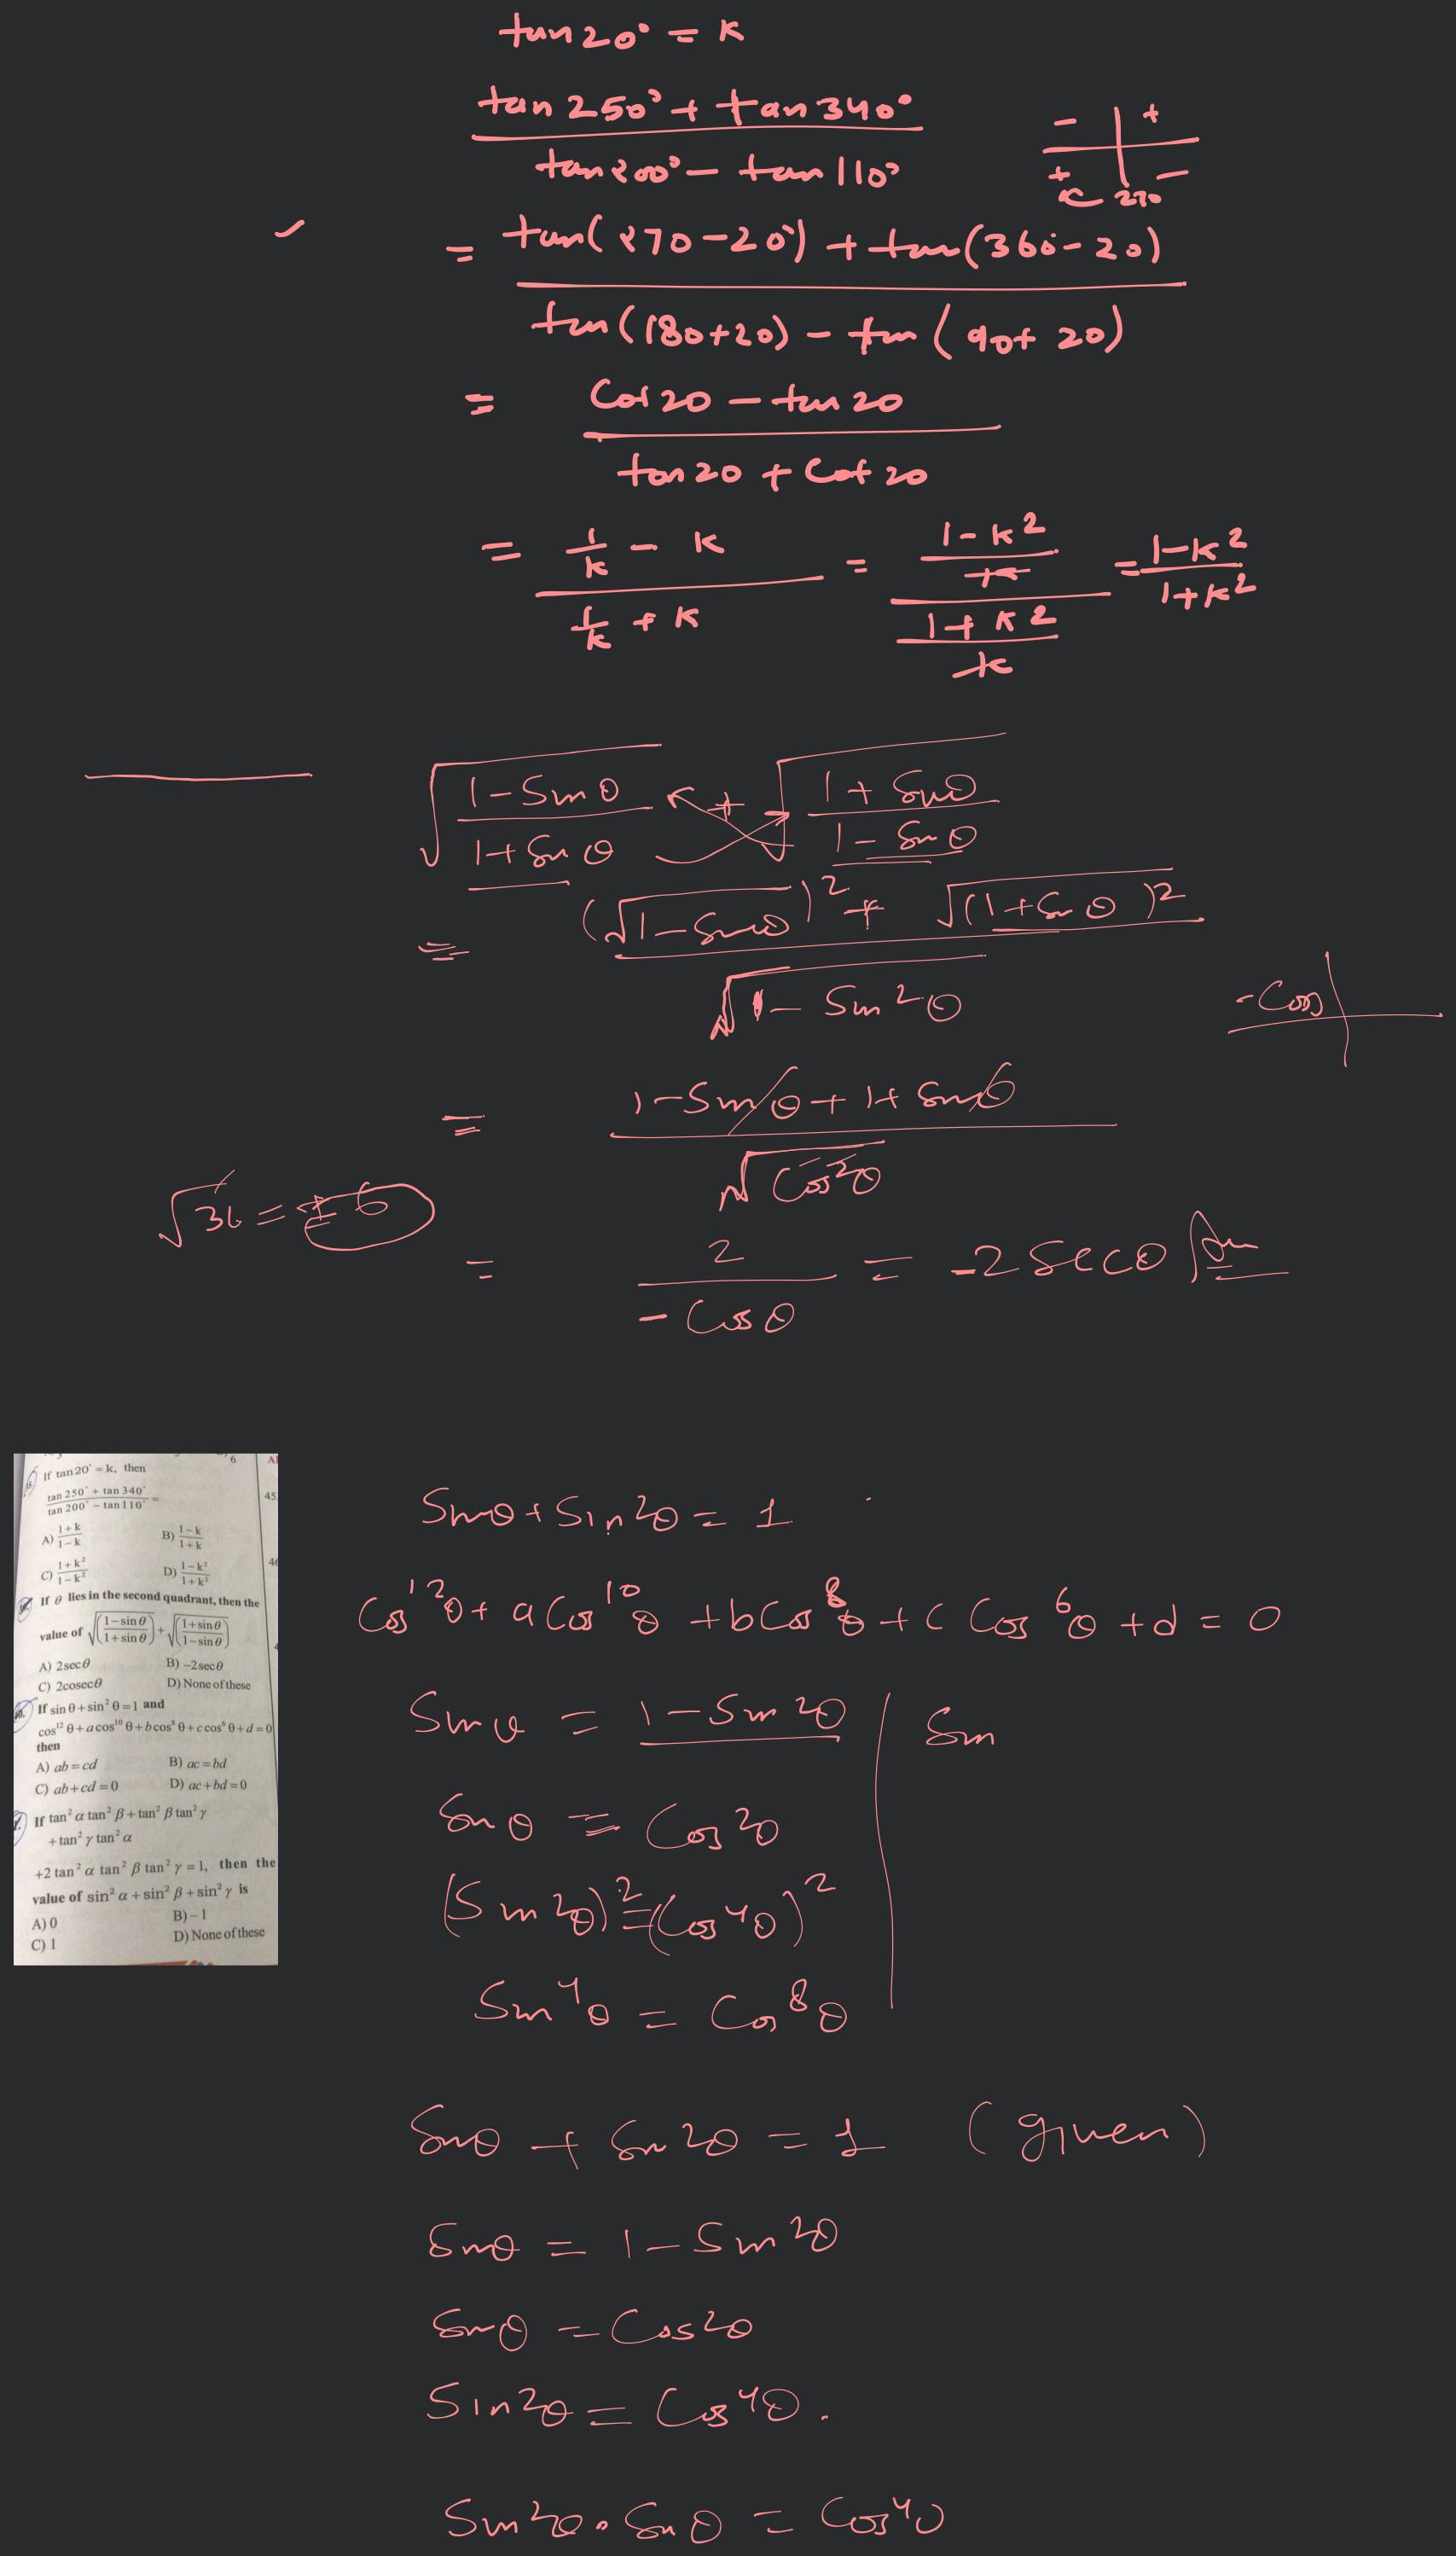 tan20° = k
tan250° + tan340°
tan200° - tan110°
- +
+ -
C 270
= tan(270-20°) + tan(360-20)
tan(180+20) - tan(90+20)
= Cot20 - tan20
tan20 + Cot20
= 1/k - k = 1-k² = 1-k²
k 1+k²
1/k + k 1+k²
k
√(1-Sinθ / 1+Sinθ) + √(1+Sinθ / 1-Sinθ)
= (√1-Sinθ)² + √(1+Sinθ)²
√1-Sin²θ
-Cos
= 1-Sinθ + 1+Sinθ
√Cos²θ
√36 = ±6
= 2 = -2Secθ
-Cosθ
6
If tan20° = k, then
tan 250° + tan 340°
tan 200° - tan 110° =
45.
A) 1+k / 1-k B) 1-k / 1+k
C) 1+k² / 1-k² D) 1-k² / 1+k²
If θ lies in the second quadrant, then the
value of √(1-sinθ / 1+sinθ) + √(1+sinθ / 1-sinθ)
A) 2secθ B) -2secθ
C) 2cosecθ D) None of these
If sinθ+sin²θ=1 and
cos¹²θ+acos¹⁰θ+bcos⁸θ+ccos⁶θ+d=0
then
A) ab=cd B) ac=bd
C) ab+cd=0 D) ac+bd=0
If tan²α tan²β+tan²β tan²γ
+tan²γ tan²α
+2tan²α tan²β tan²γ=1, then the
value of sin²α+sin²β+sin²γ is
A) 0 B) -1
C) 1 D) None of these
Sinθ + Sin²θ = 1
Cos¹²θ + aCos¹⁰θ + bCos⁸θ + cCos⁶θ + d = 0
Sinθ = 1-Sin²θ
Sin
Sinθ = Cos²θ
(Sin²θ)² = (Cos⁴θ)²
Sin⁴θ = Cos⁸θ
Sinθ + Sin²θ = 1 (given)
Sinθ = 1-Sin²θ
Sinθ = Cos²θ
Sin²θ = Cos⁴θ.
Sin²θ . Sinθ = Cos⁴θ